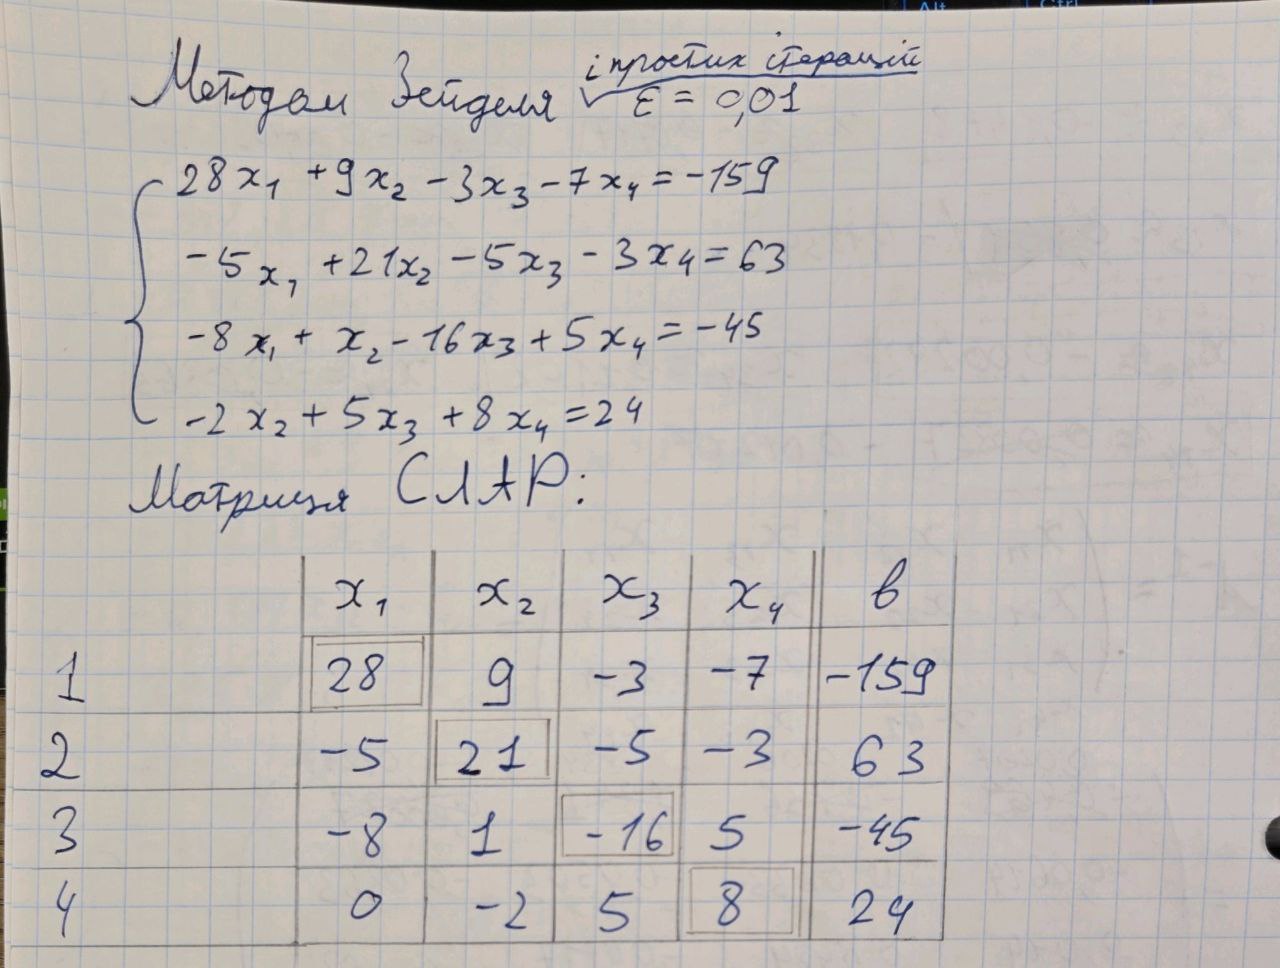 Alt Ctrl
і простих ітерацій
Методом Зейделя ε = 0,01
28x₁ + 9x₂ - 3x₃ - 7x₄ = -159
-5x₁ + 21x₂ - 5x₃ - 3x₄ = 63
-8x₁ + x₂ - 16x₃ + 5x₄ = -45
-2x₂ + 5x₃ + 8x₄ = 24
Матриця СЛАР:
x₁ x₂ x₃ x₄ в
1 28 9 -3 -7 -159
2 -5 21 -5 -3 63
3 -8 1 -16 5 -45
4 0 -2 5 8 24